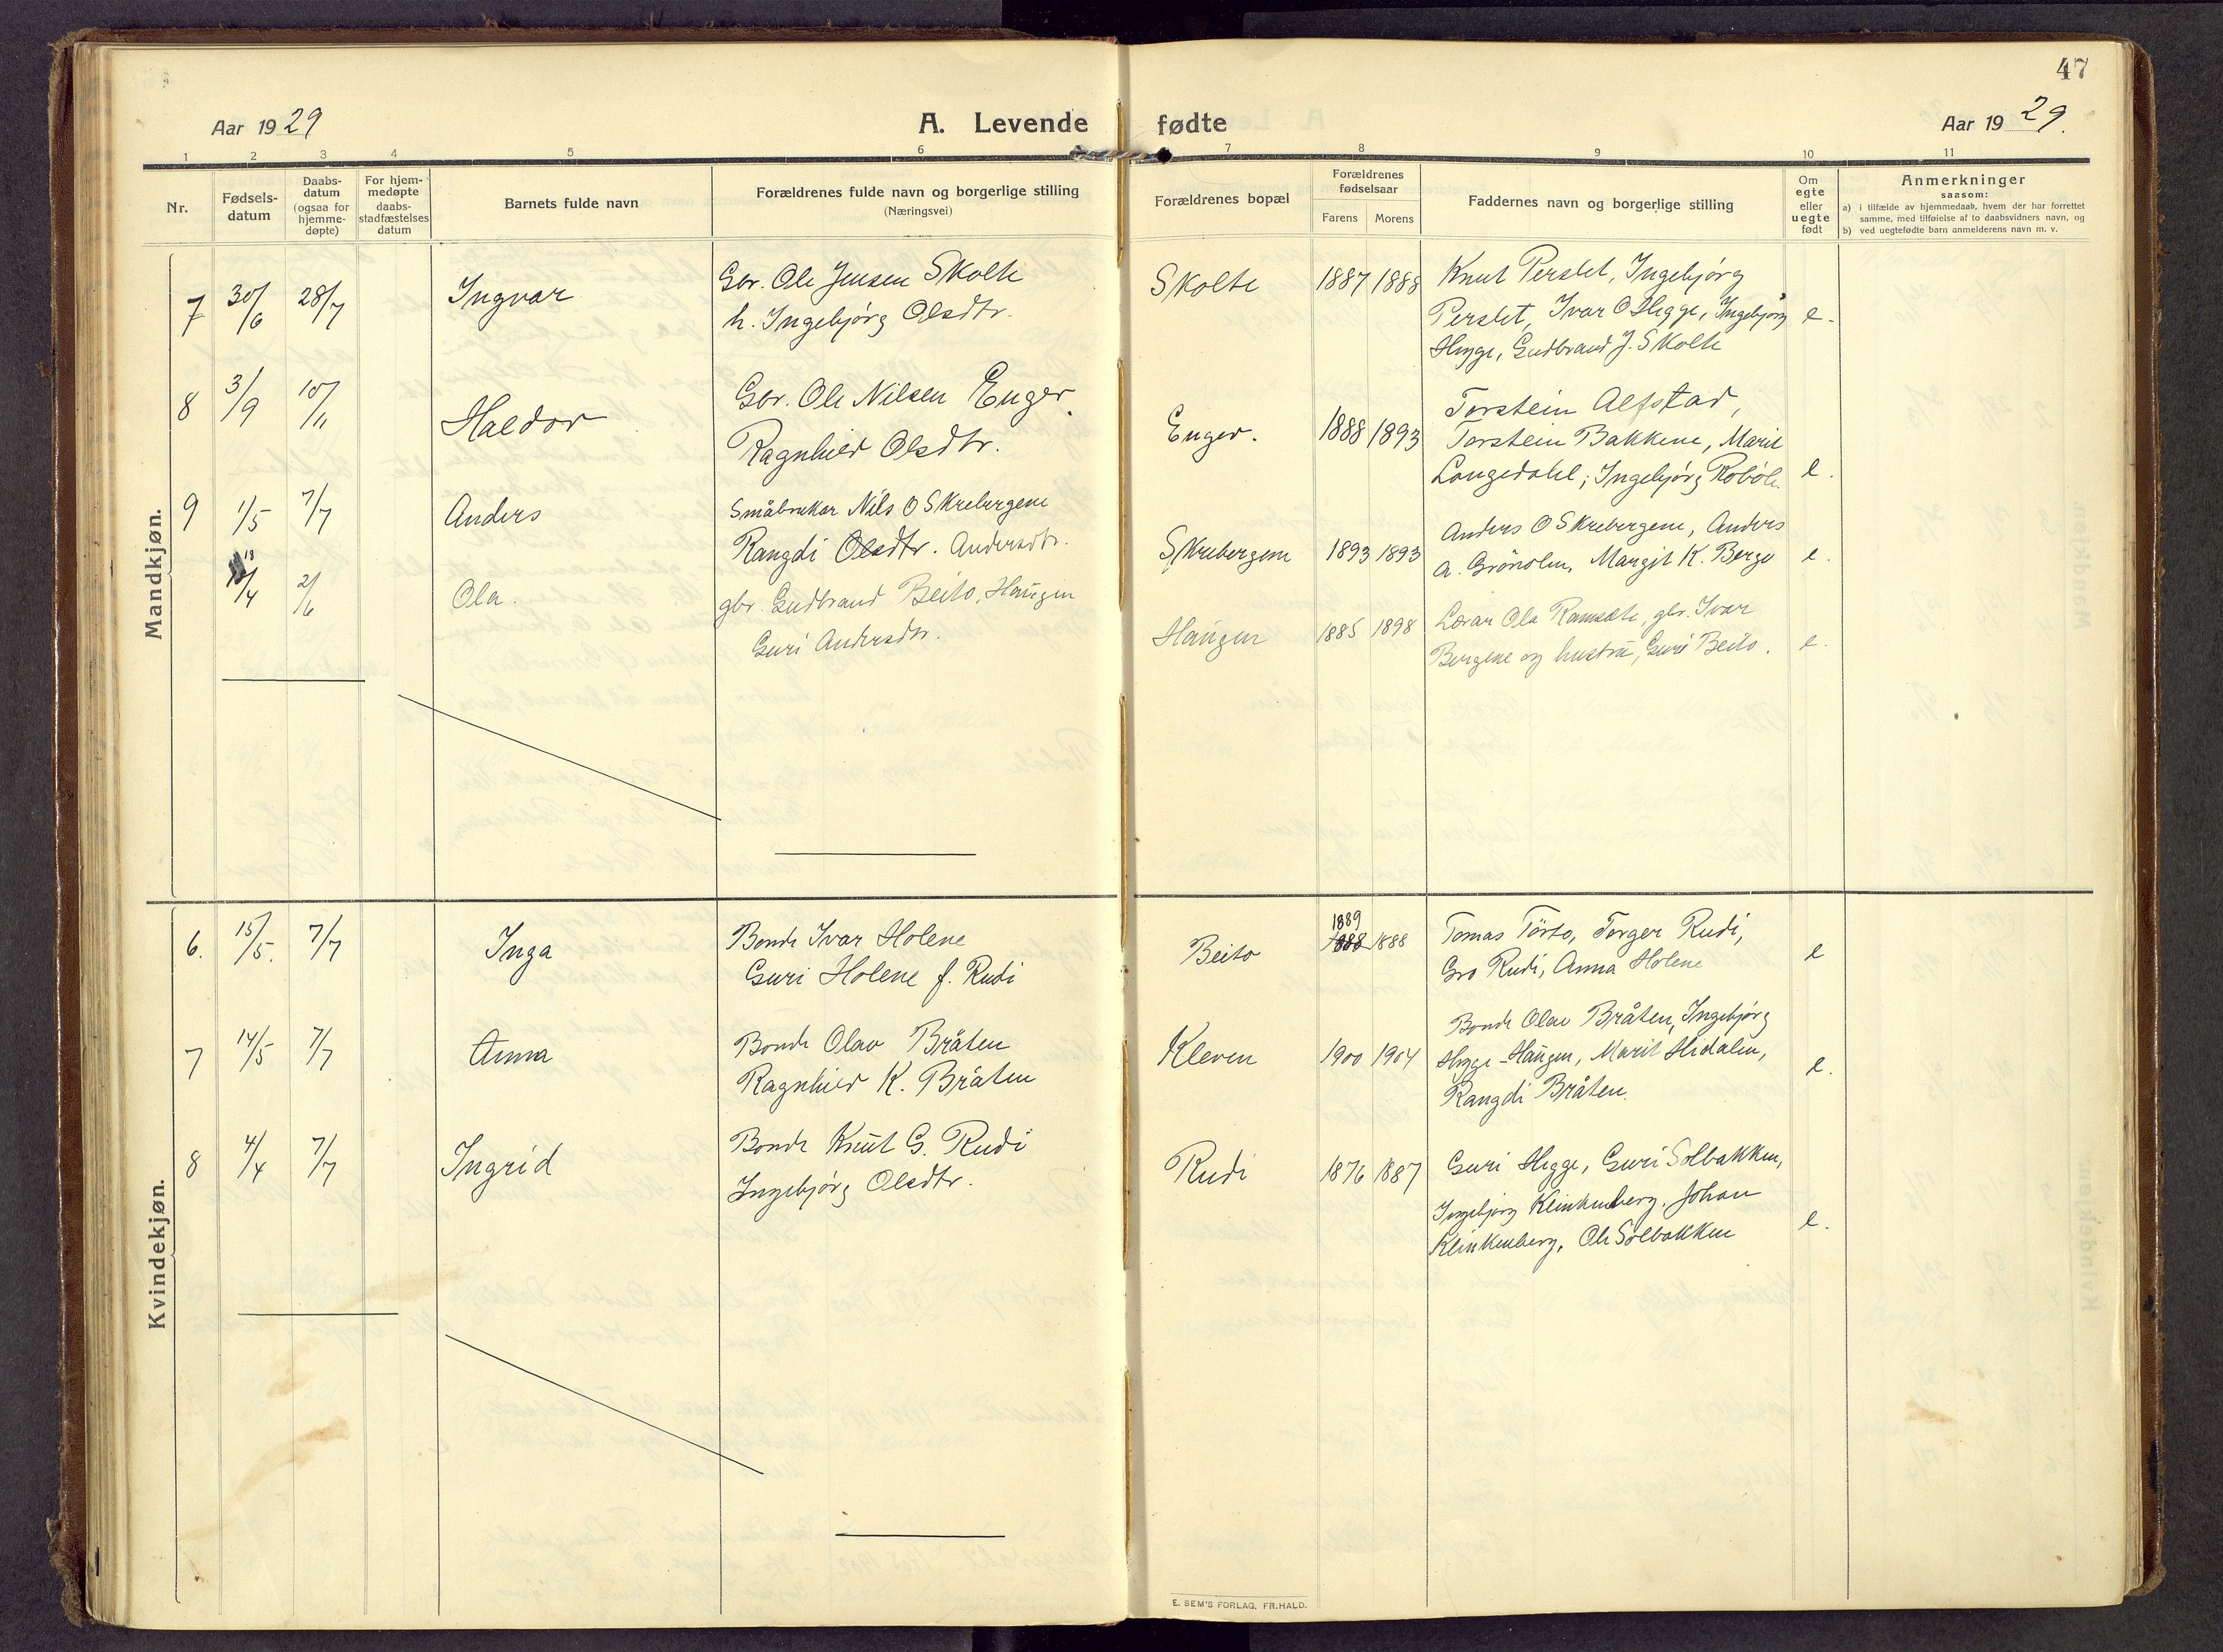 47
Aar 1929
A. Levende fødte
Aar 1929.
1 2 3 4 5 6 7 8 9 10 11
Nr.
Fødsels-
datum
Daabs-
datum
(ogsaa for
hjemme-
døpte)
For hjem-
medøpte
daabs-
stadfæstelses
datum
Barnets fulde navn
Forældrenes fulde navn og borgerlige stilling
(Næringsvei)
Forældrenes bopæl
Forældrenes
fødselsaar
Farens Morens
Faddernes navn og borgerlige stilling
Om
egte
eller
uegte
født
Anmerkninger
saasom:
a) i tilfælde av hjemmedaab, hvem der har forrettet
samme, med tilføielse af to daabsvidners navn, og
b) ved uegtefødte barn anmelderens navn m. v.
Mandkjøn.
7 30/6 28/7 Ingvar
Gbr. Ole Jensen Skolte
h. Ingebjørg Olsdtr.
Skolte 1887 1888
Knut Perslet, Ingebjørg
Perslet, Ivar O Hegge, Ingebjørg
Hegge, Gudbrand J. Skolte
e.
8 3/9 10/11 Haldor
Gbr. Ole Nilsen Enger.
Ragnhild Olsdtr.
Enger. 1888 1893
Torstein Alfstad,
Torstein Bakkene, Marit
Langedahl, Ingebjørg Robøle.
e.
9 1/5 7/7 Anders
Småbruker Nils O Skrebergene
Rangdi Olsdtr. Andersdtr.
Skrebergene 1893 1893
Anders O Skrebergene, Anders
A. Grönolen, Margit K. Berge
e.
18/4 2/6 Ola.
gbr. Gudbrand Beito, Haugen
Guri Andersdtr.
Haugen 1885 1898
Lærar Ola Ramsete, gbr. Ivar
Bergene og hustru, Guri Beito.
e.
Kvindekjøn.
6. 15/5. 7/7 Inga
Bonde Ivar Holene
Guri Holene f. Rudi
Beito 1889 1888 1888
Tomas Törto, Torger Rudi,
Gro Rudi, Anna Holene
e
7 14/5 7/7 Anna
Bonde Olav Bråten
Ragnhild K. Bråten
Kleven 1900 1904
Bonde Olav Bråten, Ingebjørg
Hegge-Haugen, Marit Hidalen,
Rangdi Bråten.
e.
8 4/4 7/7 Ingrid
Bonde Knut G. Rudi
Ingebjørg Olsdtr.
Rudi 1876 1887
Guri Hegge, Guri Solbakken,
Ingebjørg Klinkenberg, Johan
Klinkenberg, Ole Solbakken
e.
E. SEM'S FORLAG, FR.HALD.